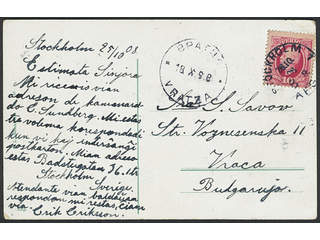 Stockholm 27/10 08.
Estimata Sinjoro
Mi ricevis vian
adreson de kamerado
C. Sundberg. Mi estas
tre volema korespondadi
kun vi kaj interŝanĝi
poŝtkartojn. Mian adreson
estas Badstugatan 36. 1tr
Stockholm
Sverige.
Atendante vian baldaŭan
respondon mi restas, ciam
via.
Erik Erikson.
ВРАЦА
18 X 9 8
VRATZA
STOCKHOLM 7
10
A. S. Savov
Str. Voznesenska 11
Vraca
Bulgarujo.